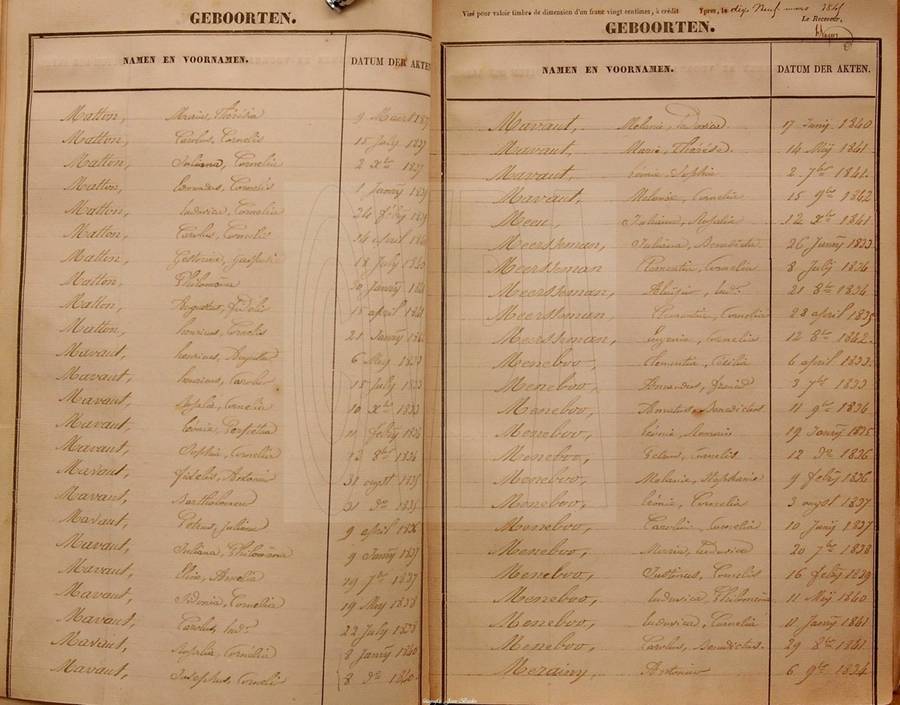 GEBOORTEN.
NAMEN EN VOORNAMEN. DATUM DER AKTEN
Matton, Maria, Thérésia 9 Maert 1837
Matton, Carolus, Cornelis 15 July 1837
Matton, Juliana, Cornelia 2 Xbre 1837
Matton, Cornelis 1 Janry 1839
Matton, Ludovica, Cornelia 24 febry 1839
Matton, Carolus, Cornelis 14 april
Matton, 18 July
Matton, Philomena 10 Janry
Matton, Augustus, fidelis 15 april
Matton, henricus, Cornelis 21 Janry
Mavaut, henricus, 6 Mey 1833
Mavaut, henricus, Carolus 15 July 1833
Mavaut, Rosalia, Cornelia 10 Xbre 1833
Mavaut, Léonie, Perpetua 11 febry
Mavaut, Sophia, Cornelia 12 8bre 1834
Mavaut, fidelis, Antonius 31 ougst 1835
Mavaut, Bartholomeus 31 do 1835
Mavaut, Petrus, Juliana 9 april 1836
Mavaut, Juliana, Philomena 9 Janry 1837
Mavaut, Amelia 19 7bre 1837
Mavaut, Sidonia, Cornelia 19 Mey 1838
Mavaut, Carolus, Ludc 22 July
Mavaut, Rosalia, Cornelia 8 Janry 1840
Mavaut, Josephus, Cornelis 8 do 1840
Visé pour valoir timbre de dimension d'un franc vingt centimes, à crédit. Ypres, le dix Neuf mars 1845
Le Receveur,
GEBOORTEN.
NAMEN EN VOORNAMEN. DATUM DER AKTEN.
Mavaut, Melanie, Ludovica 17 Juny 1840
Mavaut, Marie, Thérése 14 Mey 1841
Mavaut, Léonie, Sophie 2 7bre 1841
Mavaut, Melanie, Cornelia 15 9bre 1842
Meen, Juliana, Rosalia 12 Xbre 1841
Meersseman, Juliana, Benedicta 26 Janry 1833
Meersseman Clementia, Cornelia 8 July 1834
Meersseman, Aloïsius, Ludc 21 8bre 1834
Meersseman, Clementia, Cornelia 28 april 1835
Meersseman, Eugenia, Cornelia 12 8bre 1842
Meneboo, Clementia, Cecilia 6 april 1833
Meneboo, 3 7bre 1833
Meneboo, Donatus, Benedictus 11 9bre 1834
Meneboo, Léonie, 19 Janry 1835
Meneboo, Cornelis 12 do 1836
Meneboo, Melanie, Stephanie 9 febry 1836
Meneboo, Léonie, Cornelia 3 ougst 1837
Meneboo, Carolina, Cornelia 10 Juny 1837
Meneboo, Maria, Ludovica 20 7bre 1838
Meneboo, Justinus, Cornelis 16 febry 1839
Meneboo, Ludovica, Philomena 11 Mey 1840
Meneboo, Ludovica, Cornelia 11 Janry 1841
Meneboo, Carolus, Benedictus 29 8bre 1841
Merainy, Antonius 6 9bre 1834